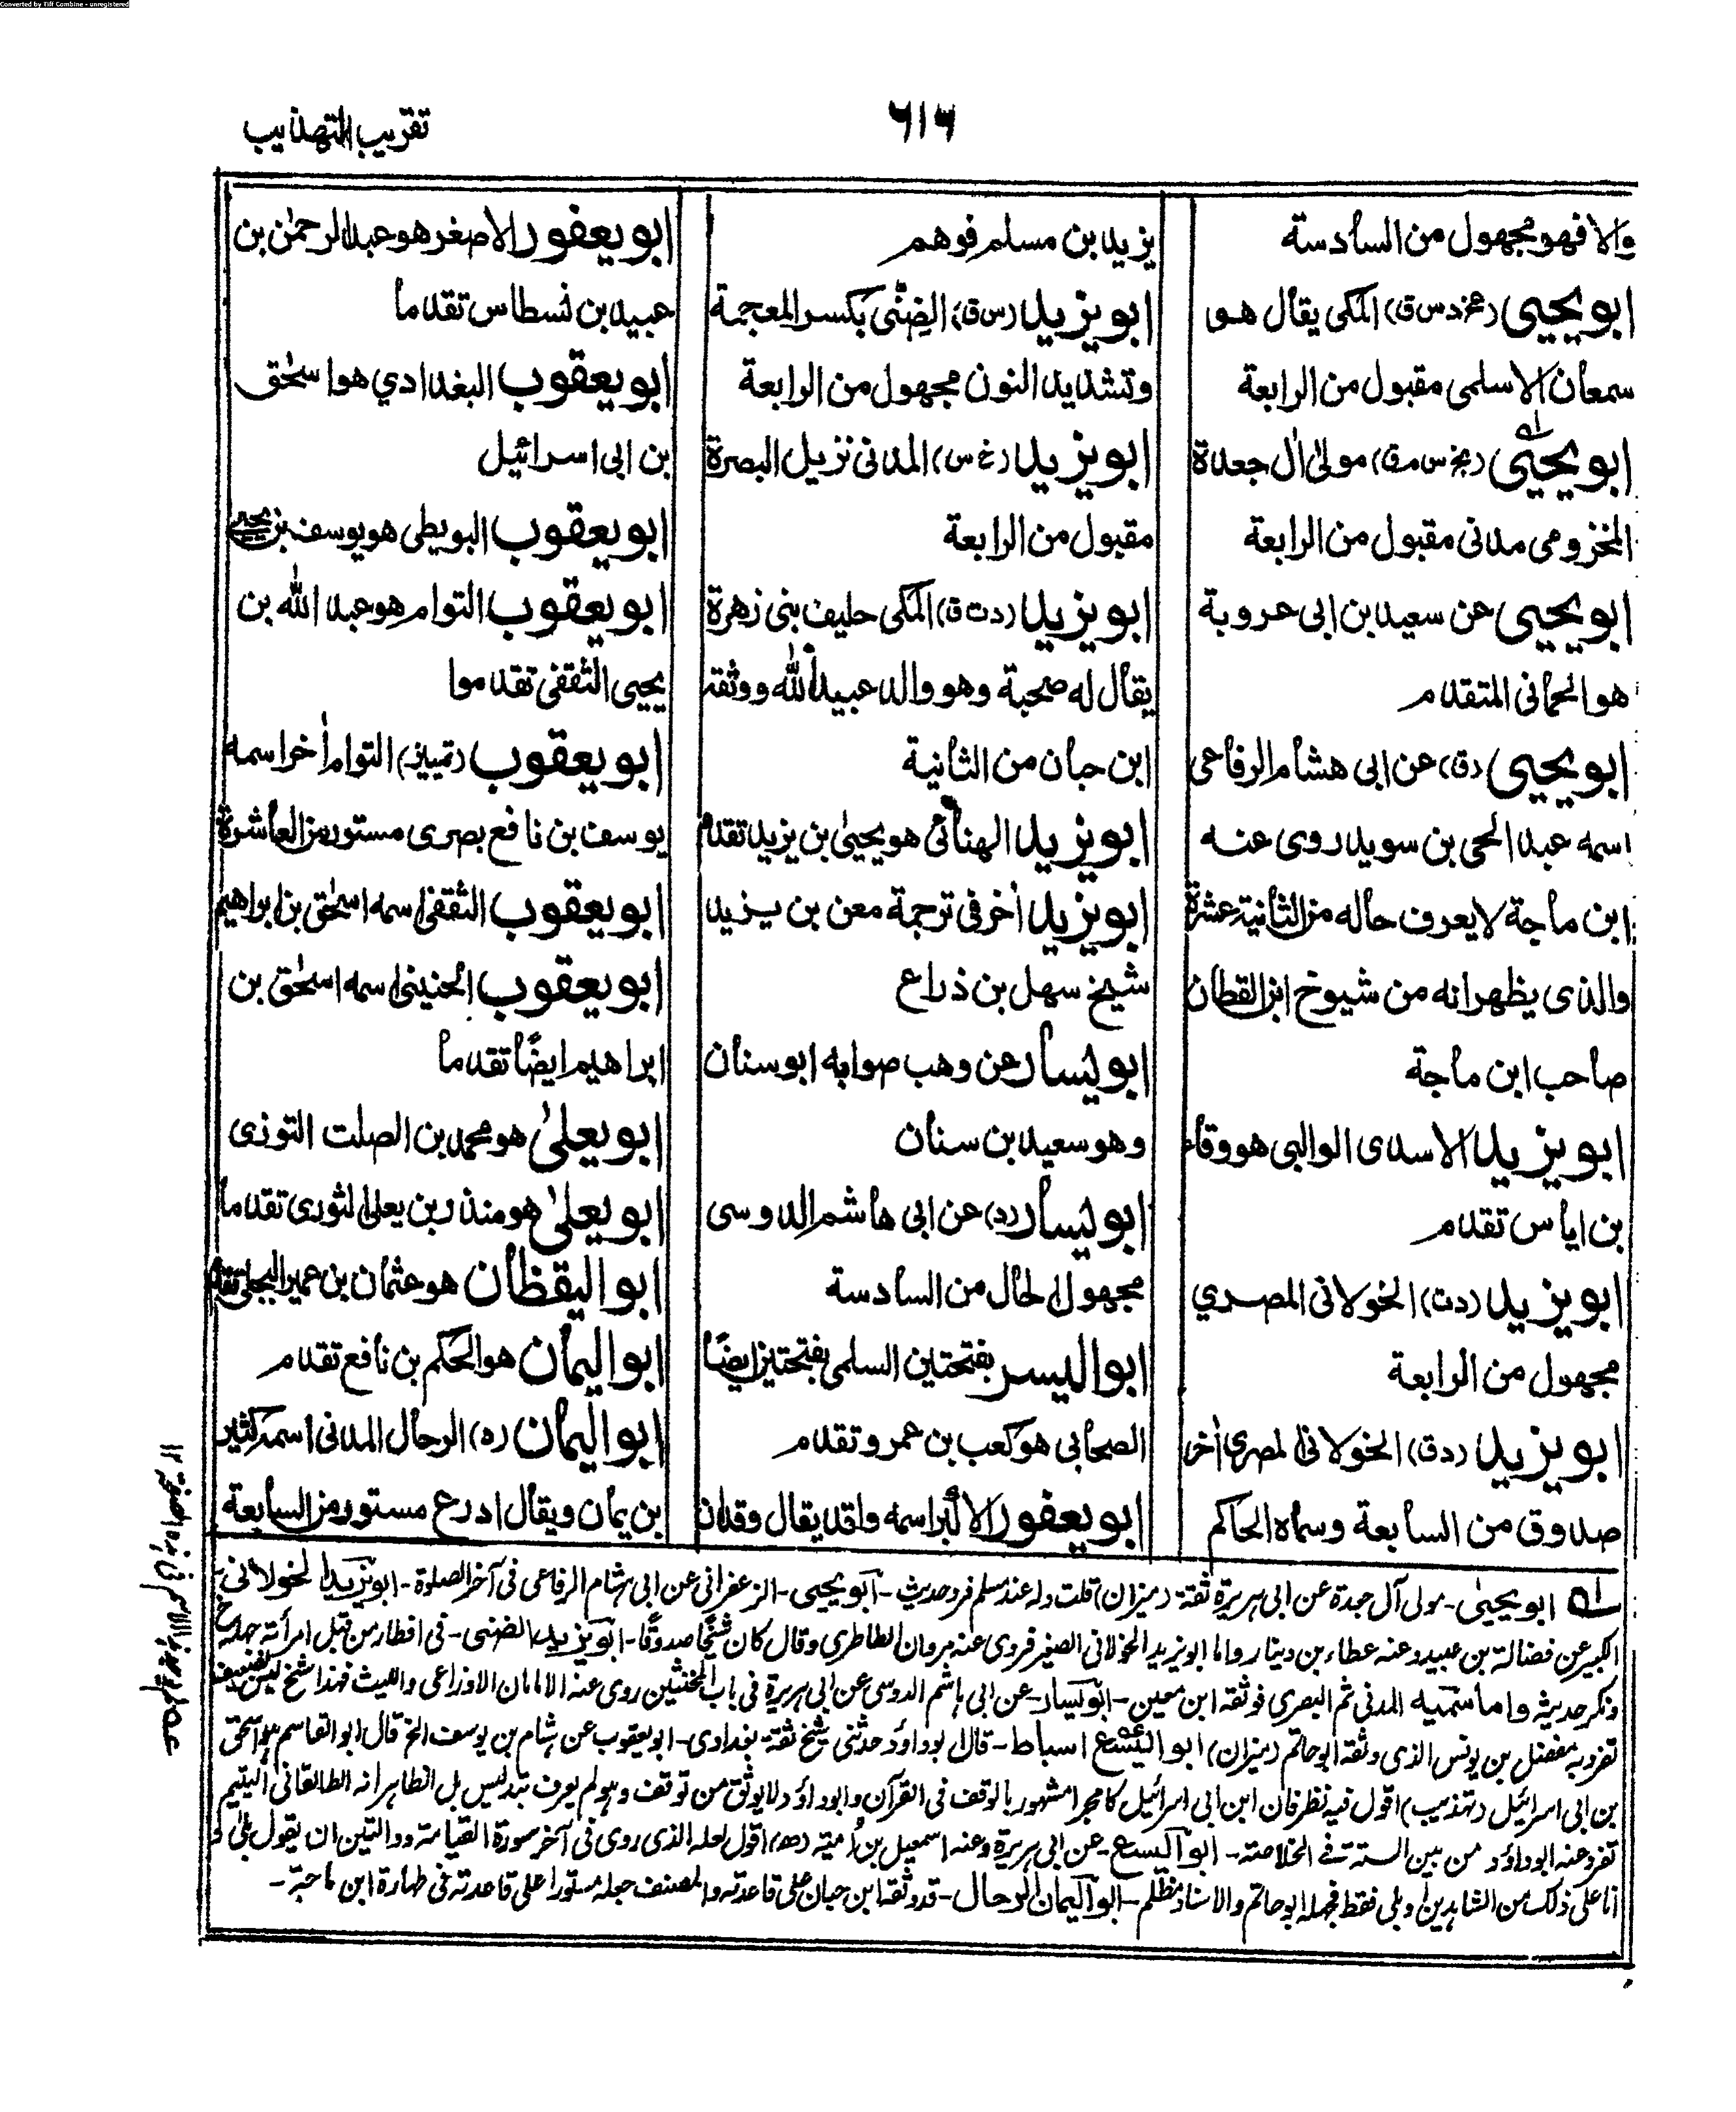 Converted by Tiff Combine - unregistered
٦١٦
تقريب التهذيب
والا فهو مجهول من السادسة
ابو يحيى (عخ د س ق) المكى يقال هو
سمعان الاسلمى مقبول من الرابعة
ابو يحيى (بخ س م ق) مولى آل جعدة
المخزومى مدنى مقبول من الرابعة
ابو يحيى عن سعيد بن ابى عروبة
هو الحمانى المتقدم
ابو يحيى (ق) عن ابى هشام الرفاعى
اسمه عبد الحى بن سويد روى عنه
ابن ماجة لا يعرف حاله من الثانية عشرة
والذى يظهر انه من شيوخ ابن القطان
صاحب ابن ماجة
ابو يزيد الاسدى الوالبى هو وقاء
بن اياس تقدم
ابو يزيد (د ت) الخولانى المصري
مجهول من الرابعة
ابو يزيد (د ق) الخولانى المصرى آخر
صدوق من السابعة وسماه الحاكم
يزيد بن مسلم فوهم
ابو يزيد (س ق) الضنّى بكسر المعجمة
وتشديد النون مجهول من الرابعة
ابو يزيد (خ س) المدنى نزيل البصرة
مقبول من الرابعة
ابو يزيد (د ت ق) المكى حليف بنى زهرة
يقال له صحبة وهو والد عبيد الله ووثقه
ابن حبان من الثانية
ابو يزيد الهنائى هو يحيى بن يزيد تقدم
ابو يزيد آخر فى ترجمة معن بن يزيد
شيخ سهل بن ذراع
ابو يسار عن وهب صوابه ابو سنان
وهو سعيد بن سنان
ابو يسار (د) عن ابى هاشم الدوسى
مجهول الحال من السادسة
ابو اليسر بفتحتين السلمى بفتحتين ايضًا
الصحابى هو كعب بن عمرو تقدم
ابو يعفور الاكبر اسمه واقد يقال وقدان
ابو يعفور الاصغر هو عبد الرحمٰن بن
عبيد بن نسطاس تقدما
ابو يعقوب البغدادي هو اسحٰق
بن ابى اسرائيل
ابو يعقوب البويطى هو يوسف بن يحيى
ابو يعقوب التوام هو عبد الله بن
يحيى الثقفى تقدموا
ابو يعقوب (تمييز) التوام آخر اسمه
يوسف بن نافع بصرى مستور من العاشرة
ابو يعقوب الثقفى اسمه اسحٰق بن ابراهيم
ابو يعقوب الحنينى اسمه اسحٰق بن
ابراهيم ايضًا تقدما
ابو يعلىٰ هو محمد بن الصلت التوزى
ابو يعلىٰ هو منذر بن يعلى الثورى تقدما
ابو اليقظان هو عثمان بن عمير البجلى تقدم
ابو اليمان هو الحكم بن نافع تقدم
ابو اليمان (ه) الرحال المدنى اسمه كثير
بن يمان ويقال ادرع مستور من السابعة
ابو يحيىٰ - مولى آل جعدة عن ابى هريرة ثقة (ميزان) قلت وله عند مسلم فرد حديث - ابو يحيى - الزعفرانى عن ابى هشام الرفاعى فى آخر الصلوة - ابو يزيد الخولانى
الكبير عن فضالة بن عبيد وعنه عطاء بن دينار واما ابو يزيد الخولانى الصغير فروى عنه مروان الطاطرى وقال كان شيخا صدوقا - ابو يزيد الضنى - فى افطار من قبل امرأته
وذكر حديثه واما سميه المدنى ثم البصرى فوثقه ابن معين - ابو يسار - عن ابى هاشم الدوسى عن ابى هريرة فى باب المخنثين روى عنه الامامان الاوزاعى والليث فهذا شيخ ليس بضعيف
تفرد به مفضل بن يونس الذى وثقه ابو حاتم (ميزان) ابو اليسع اسباط - قال ابو داؤد حدثنى شيخ ثقة بغدادى - ابو يعقوب عن هشام بن يوسف الخ قال ابو القاسم هو اسحٰق
بن ابى اسرائيل (تهذيب) اقول فيه نظر فان ابن ابى اسرائيل كامجرا مشهور بالوقف فى القرآن وابو داؤد لا يوثق من توقف وهو لم يعرف بتدليس بل الظاهر انه الطالقانى اليتيم
تفرد عنه ابو داؤد من بين الستة فى الخلاصة - ابو اليسع - عن ابى هريرة وعنه اسمعيل بن امية (ه) اقول لعله الذى روى فى آخر سورة القيامة والتين ان يقول بلى و
انا على ذلك من الشاهدين او بلى فقط فجهله ابو حاتم والاسناد مظلم - ابو اليمان الرحال - قد وثقه ابن حبان على قاعدته والمصنف جعله مستورا على قاعدته فى طهارة ابن ماجة -